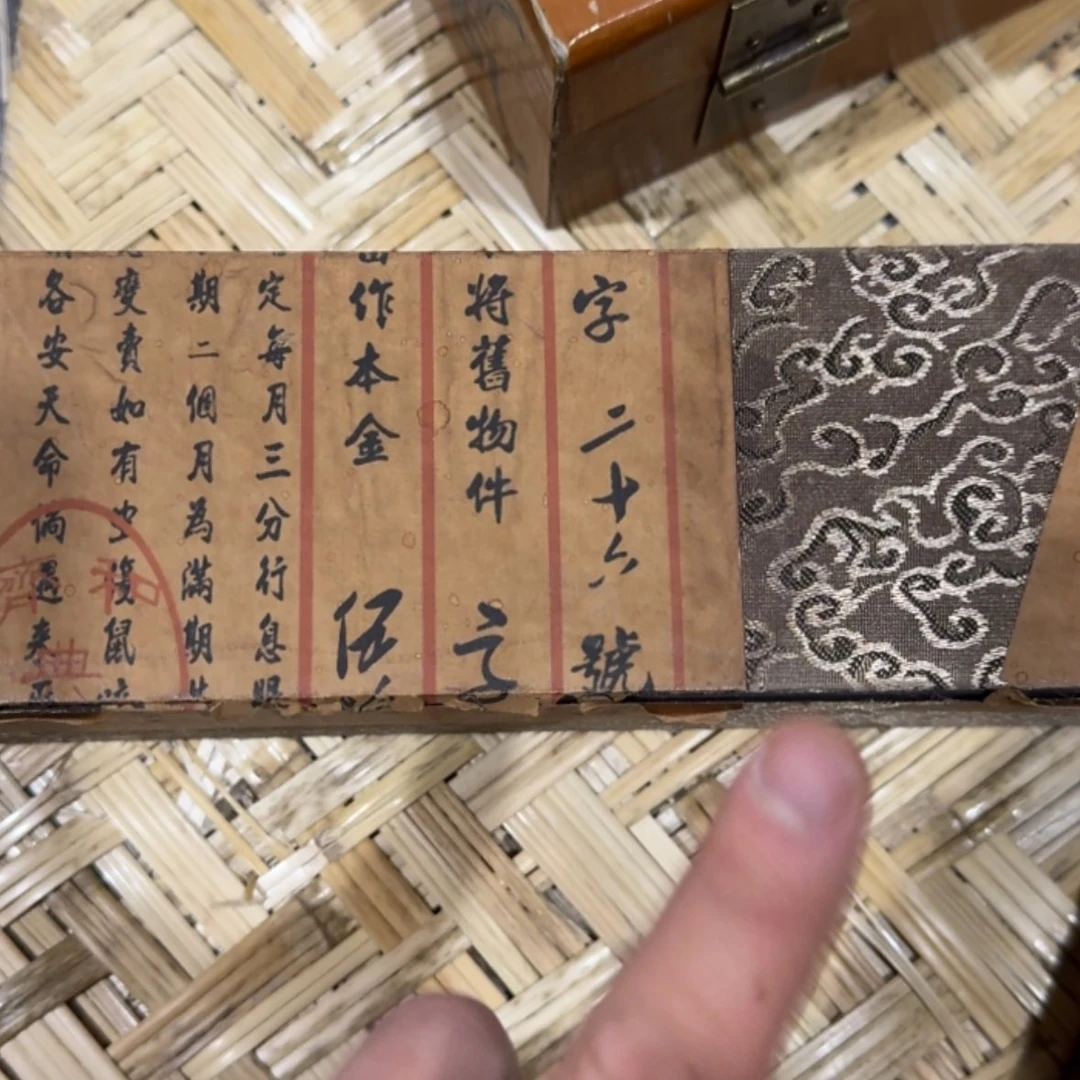 字 二十六號
將舊物件
作本金 伍
定每月三分行息
期二個月為滿期
變賣如有虫 鼠
各安天命倘遇來